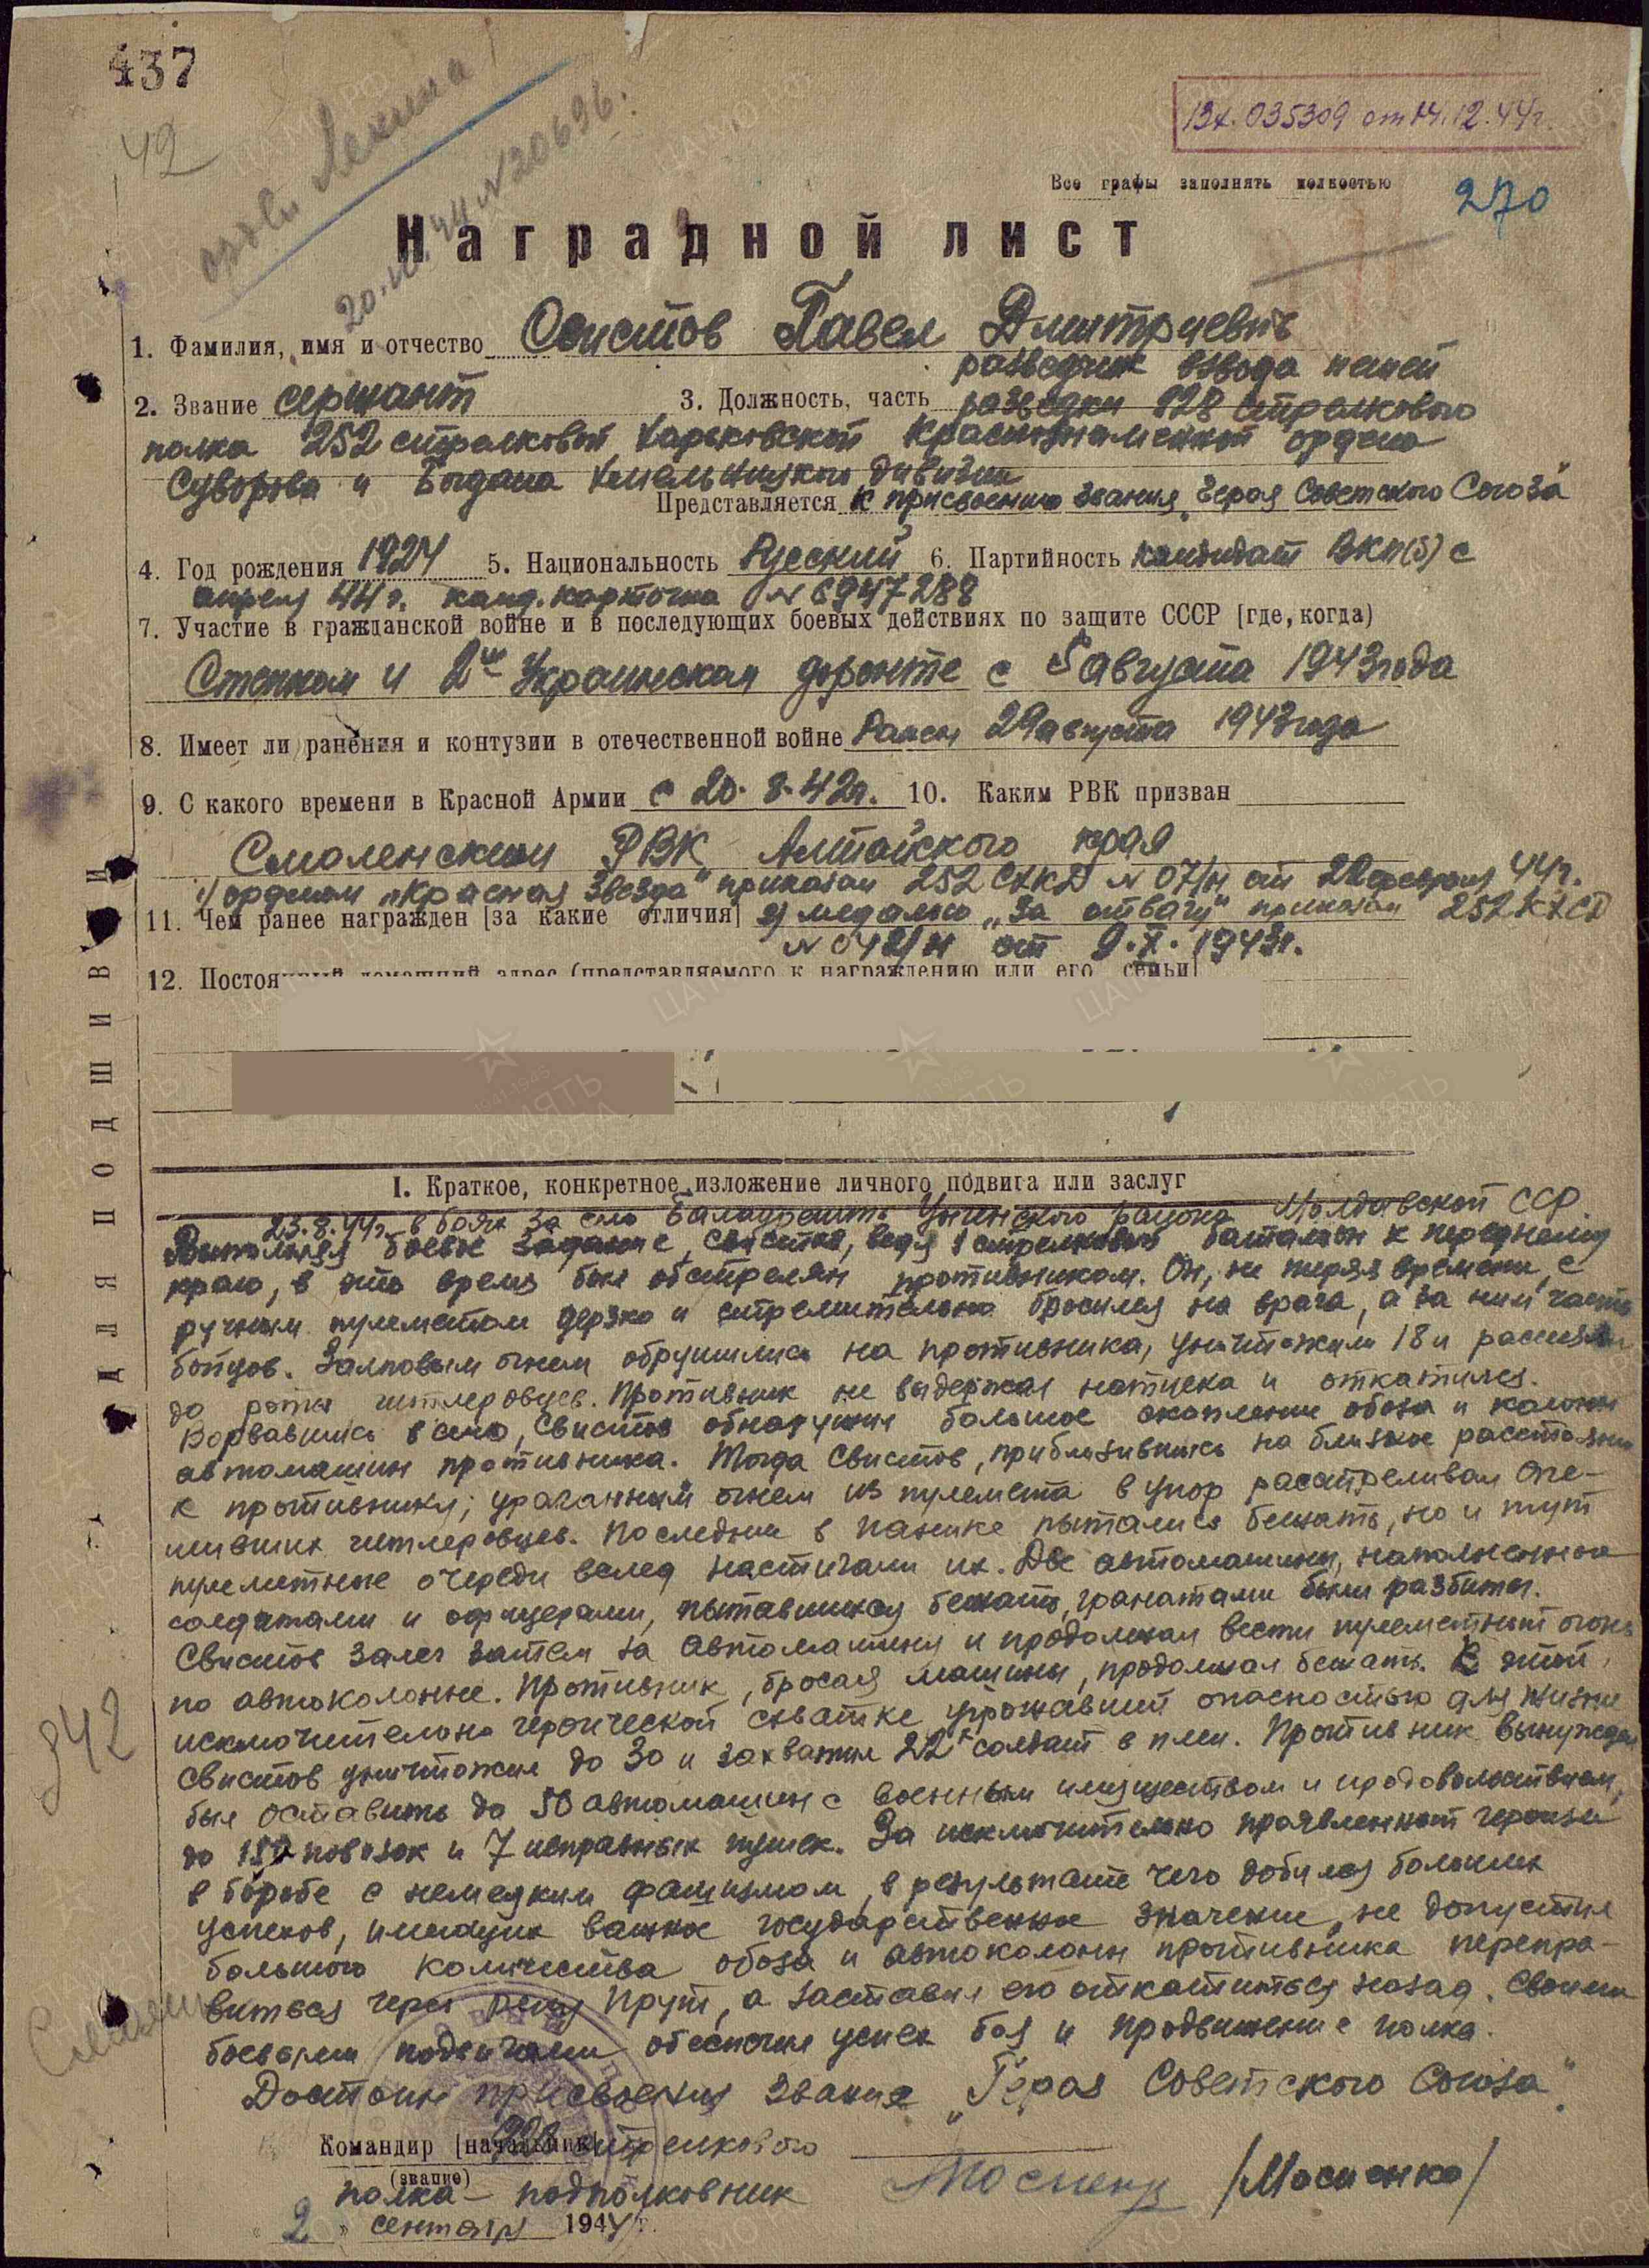 437
42
Вх. 035309 от 14.12.44г.
орден Ленина
20.11.44 N 20696.
Все графы заполнять полностью
270
Наградной лист
1. Фамилия, имя и отчество Свистов Павел Дмитриевич
разведчик взвода пешей
2. Звание сержант 3. Должность, часть разведки 928 стрелкового
полка 252 стрелковой Харьковской Краснознаменной ордена
Суворова и Богдана Хмельницкого дивизии
Представляется к присвоению звания „Героя Советского Союза"
4. Год рождения 1924 5. Национальность Русский 6. Партийность кандидат ВКП(б) с
апреля 44 г. канд. карточка N 6947288
7. Участие в гражданской войне и в последующих боевых действиях по защите СССР [где, когда)
Степном и 2м Украинском фронте с 5 августа 1943 года
8. Имеет ли ранения и контузии в отечественной войне Ранен 29 августа 1943 года
9. С какого времени в Красной Армии с 20.8.42г. 10. Каким РВК призван
Смоленским РВК Алтайского края
1) орденом „Красная Звезда" приказом 252 СХКД N 07/н от 22 февраля 44г.
11. Чем ранее награжден [за какие отличия] 2) медалью „За отвагу" приказом 252 КХСД
N 042/н от 9.X.1943г.
12. Постоянный домашний адрес (представляемого к награждению или его семьи]
ДЛЯ ПОДШИВКИ
I. Краткое, конкретное изложение личного подвига или заслуг
23.8.44г. в боях за село Молдавской ССР.
Выполняя боевое задание, Свистов, ведя 1 стрелковый батальон к переднему
краю, в это время был обстрелян противником. Он, не теряя времени, с
ручным пулеметом дерзко и стремительно бросился на врага, а за ним часть
бойцов. Залповым огнем обрушились на противника, уничтожили 18 и рассеяли
до роты гитлеровцев. Противник не выдержал натиска и откатился.
Ворвавшись в село, Свистов обнаружил большое скопление обоза и колонн
автомашин противника. Тогда Свистов, приблизившись на близкое расстояние
к противнику, ураганным огнем из пулемета в упор расстреливал опе-
шивших гитлеровцев. Последние в панике пытались бежать, но и тут
пулеметные очереди вслед настигали их. Две автомашины, наполненные
солдатами и офицерами, пытавшихся бежать, гранатами были разбиты.
Свистов залег затем за автомашину и продолжал вести пулеметный огонь
по автоколонне. Противник, бросая машины, продолжал бежать. В этой,
исключительно героической схватке угрожавшей опасностью для жизни
Свистов уничтожил до 30 и захватил 22 солдат в плен. Противник вынужден
был оставить до 50 автомашин с военным имуществом и продовольствием,
до 150 повозок и 7 исправных пушек. За исключительно проявленный героизм
в борьбе с немецким фашизмом, в результате чего добился больших
успехов, имеющих важное государственное значение, не допустил
большого количества обоза и автоколонн противника перепра-
виться через реку Прут, а заставил его откатиться назад. Своими
боевыми подвигами обеспечил успех боя и продвижение полка.
Достоин присвоения звания „Героя Советского Союза".
Командир [начальник] 928 стрелкового
(звание)
полка - подполковник /Мосиенко/
„2" сентября 1944 г.
342